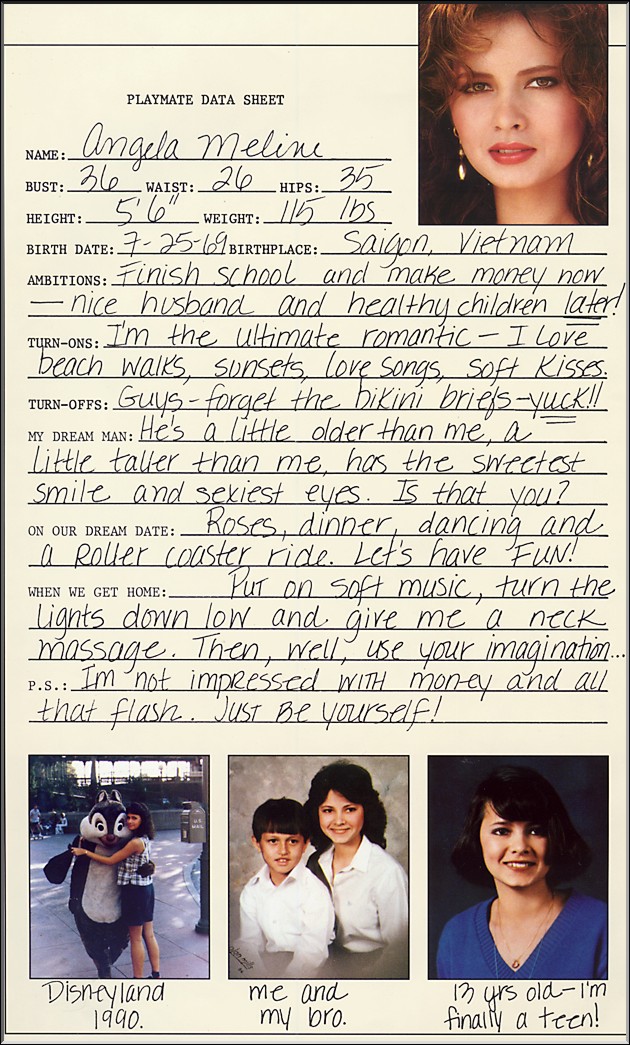 PLAYMATE DATA SHEET
NAME: Angela Melini
BUST: 36 WAIST: 26 HIPS: 35
HEIGHT: 5'6" WEIGHT: 115 lbs
BIRTH DATE: 7-25-69 BIRTHPLACE: Saigon, Vietnam
AMBITIONS: Finish school and make money now
— nice husband and healthy children later!
TURN-ONS: I'm the ultimate romantic — I Love
beach walks, sunsets, love songs, soft kisses.
TURN-OFFS: Guys - forget the bikini briefs - yuck!!
MY DREAM MAN: He's a little older than me, a
little taller than me, has the sweetest
smile and sexiest eyes. Is that you?
ON OUR DREAM DATE: Roses, dinner, dancing and
a Roller coaster ride. Let's have FUN!
WHEN WE GET HOME: Put on soft music, turn the
lights down low and give me a neck
massage. Then, well, use your imagination...
P.S.: I'm not impressed WITH money and all
that flash. Just Be yourself!
U.S. MAIL
Disneyland
1990.
me and
my bro.
13 yrs old - I'm
finally a teen!